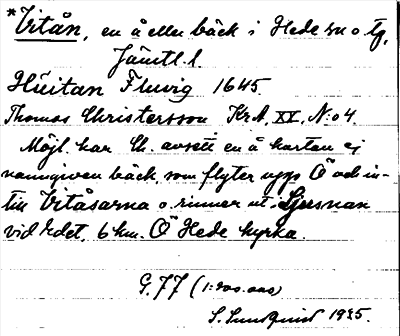 *Vitån, en å eller bäck i Hede sn o. tg,
Jämtl. l.
Huitan Fluvig 1645.
Thomas Christersson Kr.A. XX, N:o 4.
Möjl. har Ch. avsett en å kartan ej
namngiven bäck, som flyter upp Ö och in-
till Vitåsarna o. rinner ut i Ljusnan
vid Edet, 6 km. Ö Hede kyrka.
G.77 (1:200.000)
S. Sundquist 1935.